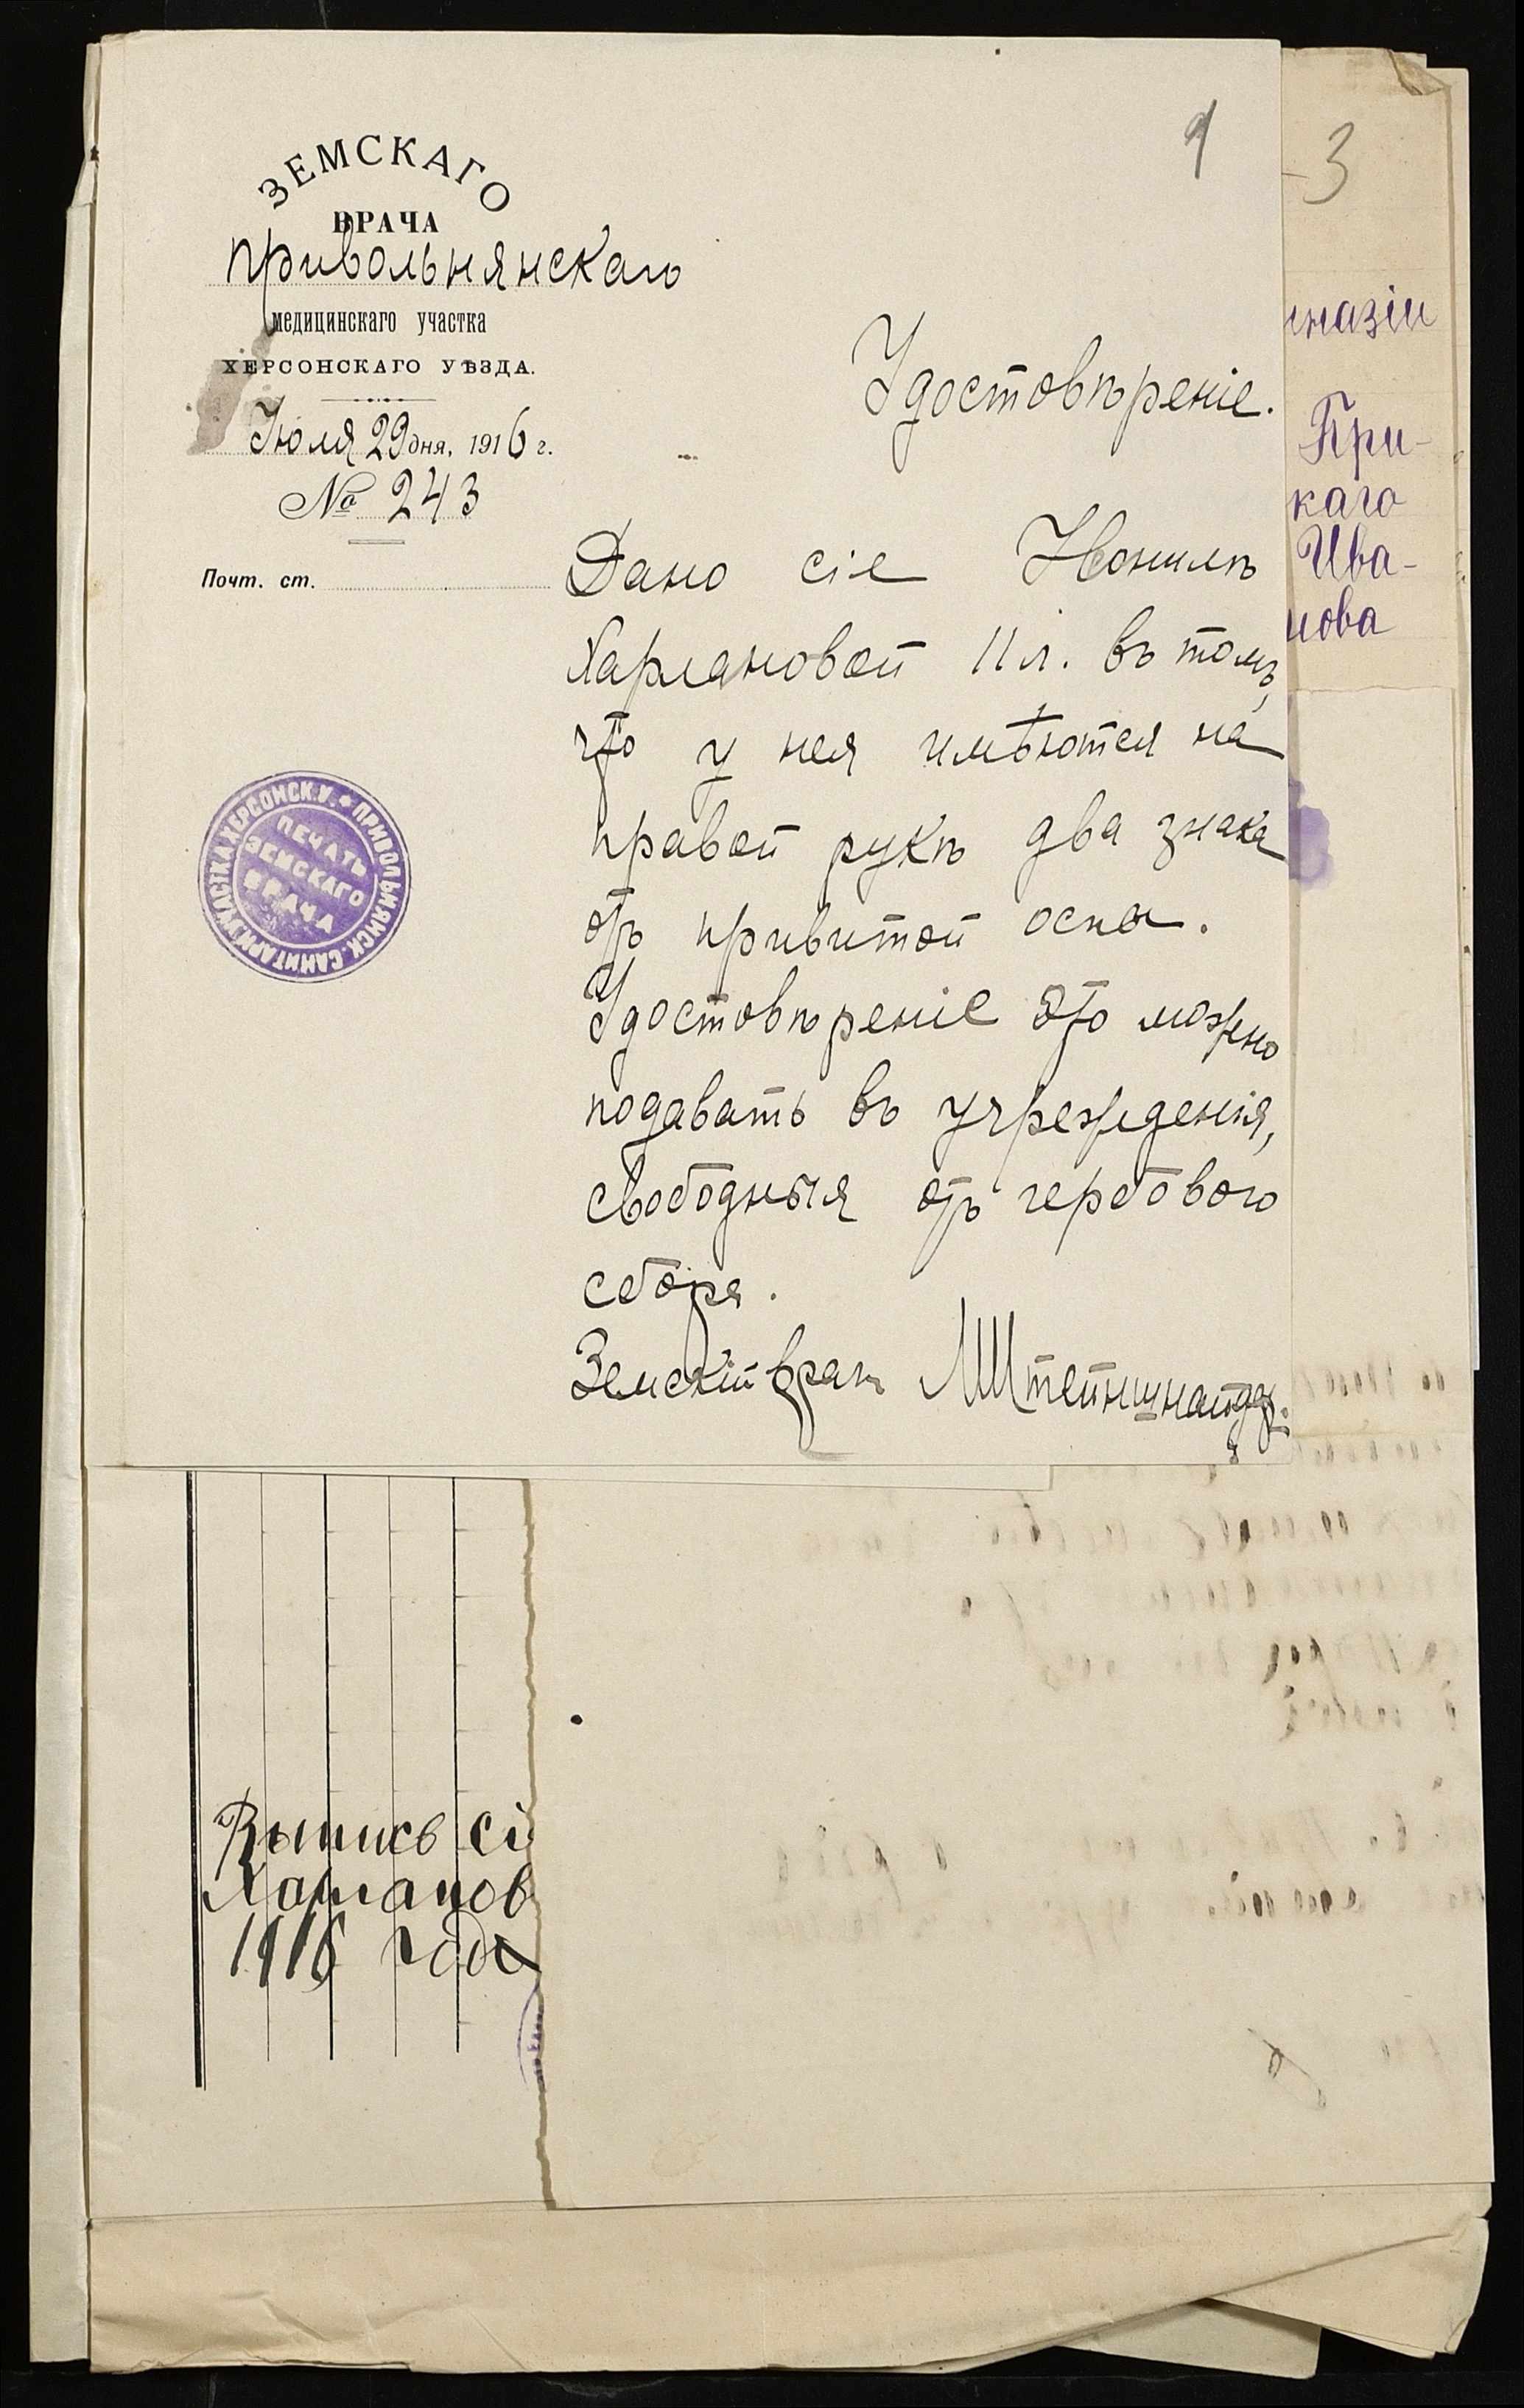 ЗЕМСКАГО
ВРАЧА
Привольнянскаго
медицинскаго участка
ХЕРСОНСКАГО УѢЗДА.
Іюля 29 дня, 1916 г.
№ 243
Почт. ст.
9
3
Удостовѣреніе.
Дано сіе Неонилѣ
Харлановой 11 л. въ томъ,
что у нея имѣются на
правой рукѣ два знака
отъ привитой оспы.
Удостовѣреніе это можно
подавать въ учрежденія,
свободныя отъ гербового
сбора.
Земскій врачъ МШтейншнайдр.
ПРИВОЛЬНЯНСК. САНИТАРН. УЧАСТКА ХЕРСОНСК. У. *
ПЕЧАТЬ
ЗЕМСКАГО
ВРАЧА
мназіи
При-
каго
Ива-
нова
Выпись сі
Харланов
1916 года